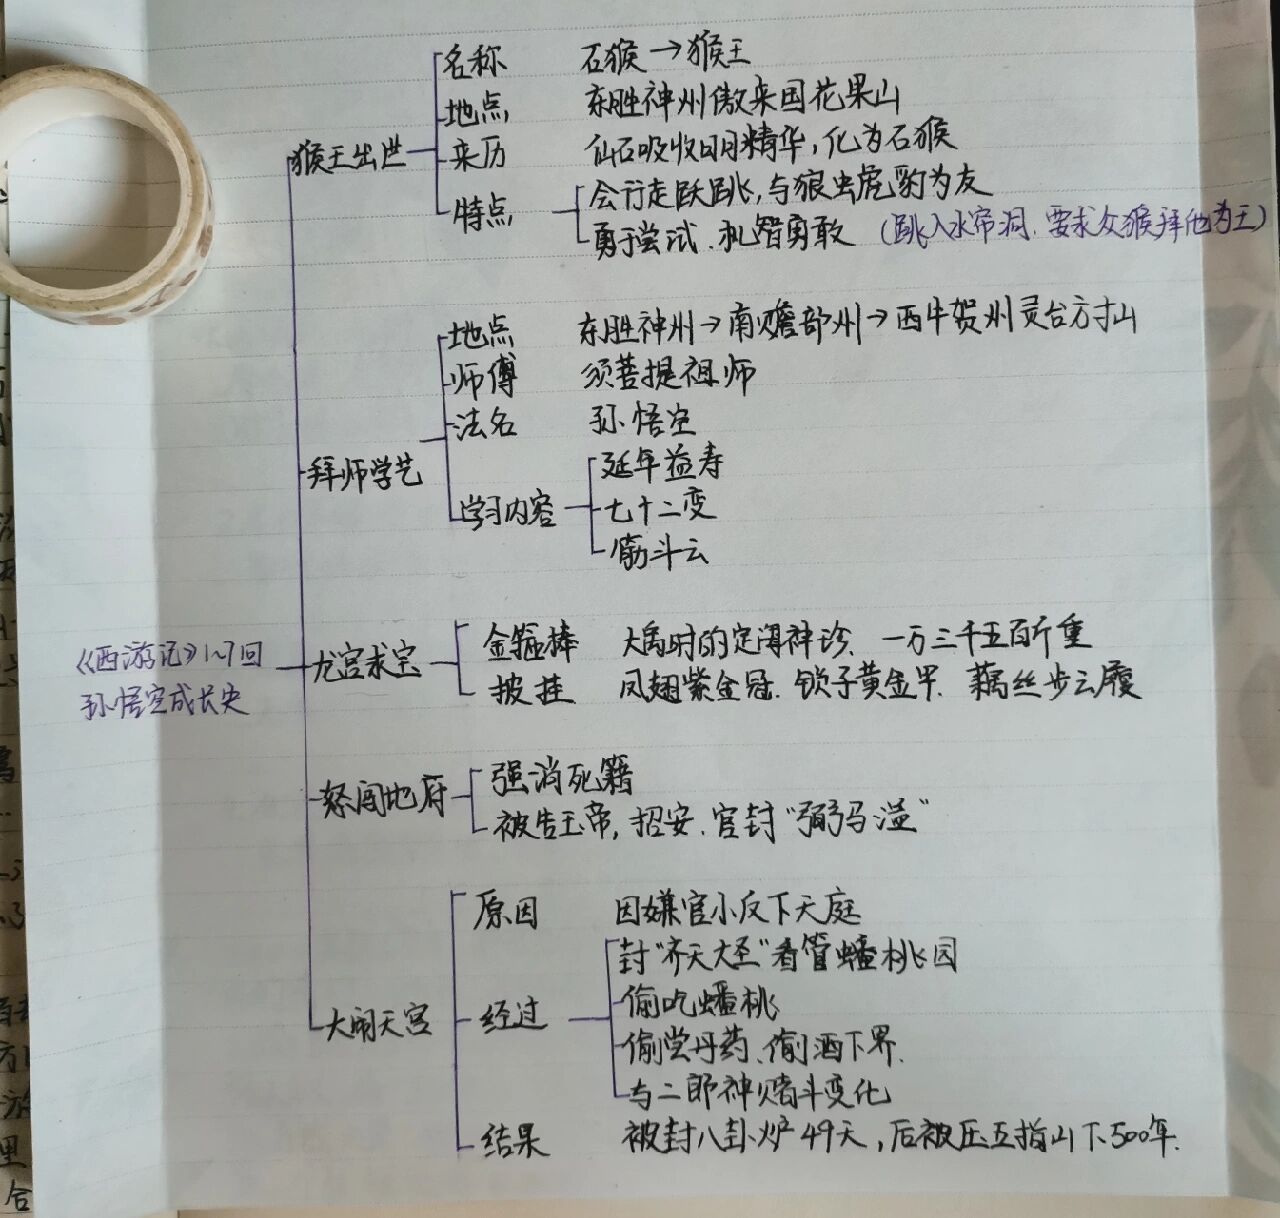 名称 石猴→猴王
地点 东胜神州傲来国花果山
猴王出世
来历 仙石吸收日月精华,化为石猴
特点
会行走跃跳,与狼虫虎豹为友
勇于尝试、机智勇敢 (跳入水帘洞、要求众猴拜他为王)
拜师学艺
地点 东胜神州→南赡部州→西牛贺州灵台方寸山
师傅 须菩提祖师
法名 孙悟空
学习内容
延年益寿
七十二变
筋斗云
《西游记》1~7回
孙悟空成长史
龙宫求宝
金箍棒 大禹时的定海神珍、一万三千五百斤重
披挂 凤翅紫金冠、锁子黄金甲、藕丝步云履
怒闯地府
强消死籍
被告玉帝,招安、官封“弼马溢”
大闹天宫
原因 因嫌官小反下天庭
经过
封“齐天大圣”看管蟠桃园
偷吃蟠桃
偷尝丹药、偷酒下界.
与二郎神赌斗变化
结果 被封八卦炉49天,后被压五指山下500年.